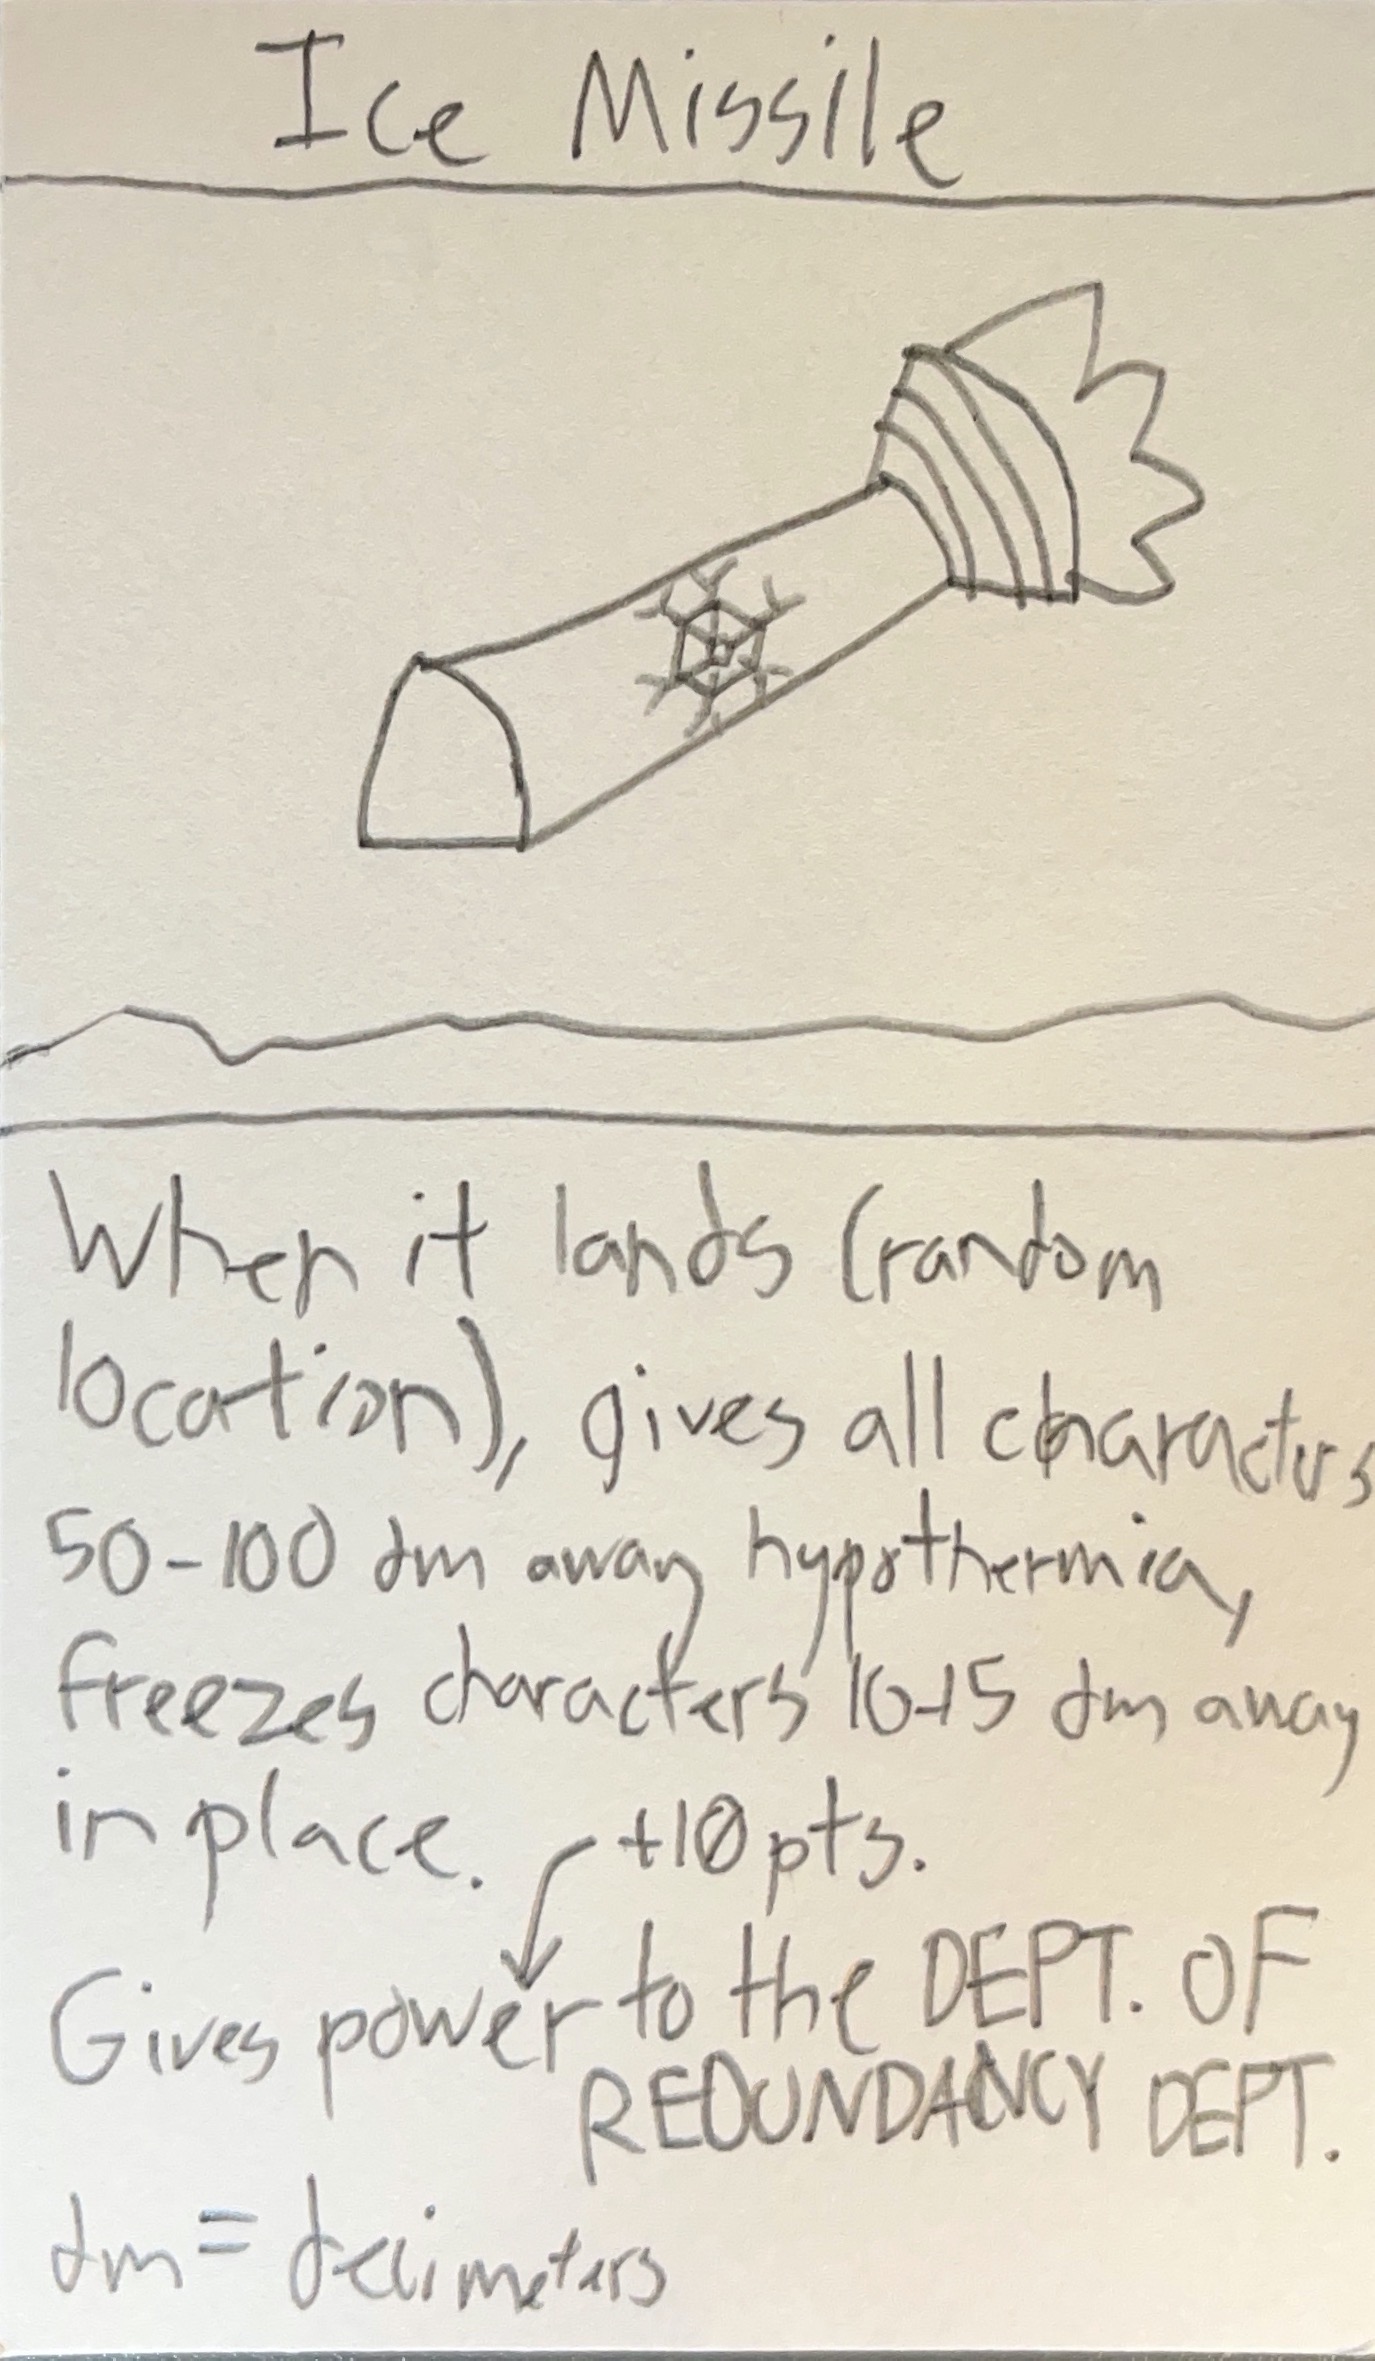 Ice Missile
When it lands (random
location), gives all characters
50-100 dm away hypothermia,
freezes characters 10-15 dm away
in place. +10 pts.
Gives power to the DEPT. OF
REDUNDANCY DEPT.
dm = decimeters